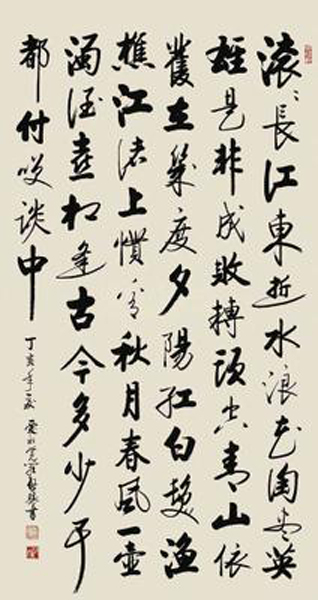 滚〻長江東逝水浪花淘盡英
雄是非成敗轉頭空青山依
舊在幾度夕陽紅白髮漁
樵江渚上慣看秋月春風一壺
濁酒喜相逢古今多少事
都付笑談中
丁亥年夏 愛新覺羅書